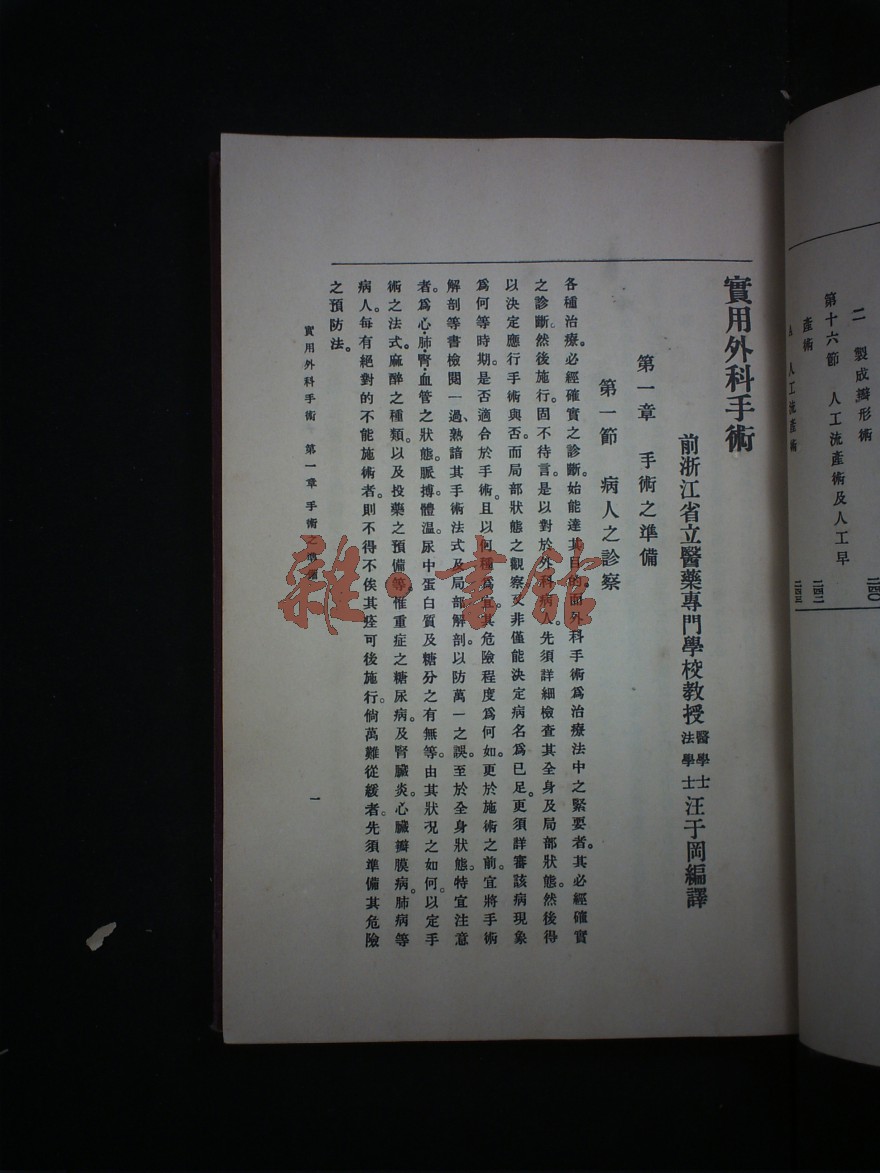 二 製成瓣形術
二四〇
第十六節 人工流產術及人工早
產術
二四二
A 人工流產術
二四三
實用外科手術
前浙江省立醫藥專門學校教授 醫學士 法學士 汪于岡編譯
第一章 手術之準備
第一節 病人之診察
各種治療。必經確實之診斷。始能達其目的。而外科手術爲治療法中之緊要者。其必經確實
之診斷。然後施行。固不待言。是以對於外科病人。先須詳細檢查其全身及局部狀態。然後得
以決定應行手術與否。而局部狀態之觀察。又非僅能決定病名爲已足。更須詳審該病現象
爲何等時期。是否適合於手術。且以何種爲宜。其危險程度爲何如。更於施術之前。宜將手術
解剖等書檢閱一過、熟諳其手術法式及局部解剖。以防萬一之誤。至於全身狀態。特宜注意
者。爲心·肺·腎·血管之狀態。脈搏。體温。尿中蛋白質及糖分之有無等。由其狀況之如何。以定手
術之法式。麻醉之種類。以及投藥之預備等。惟重症之糖尿病。及腎臟炎。心臟瓣膜病。肺病等
病人。每有絕對的不能施術者。則不得不俟其痊可後施行。倘萬難從緩者。先須準備其危險
之預防法。
實用外科手術 第一章 手術之準備
一
雜·書館